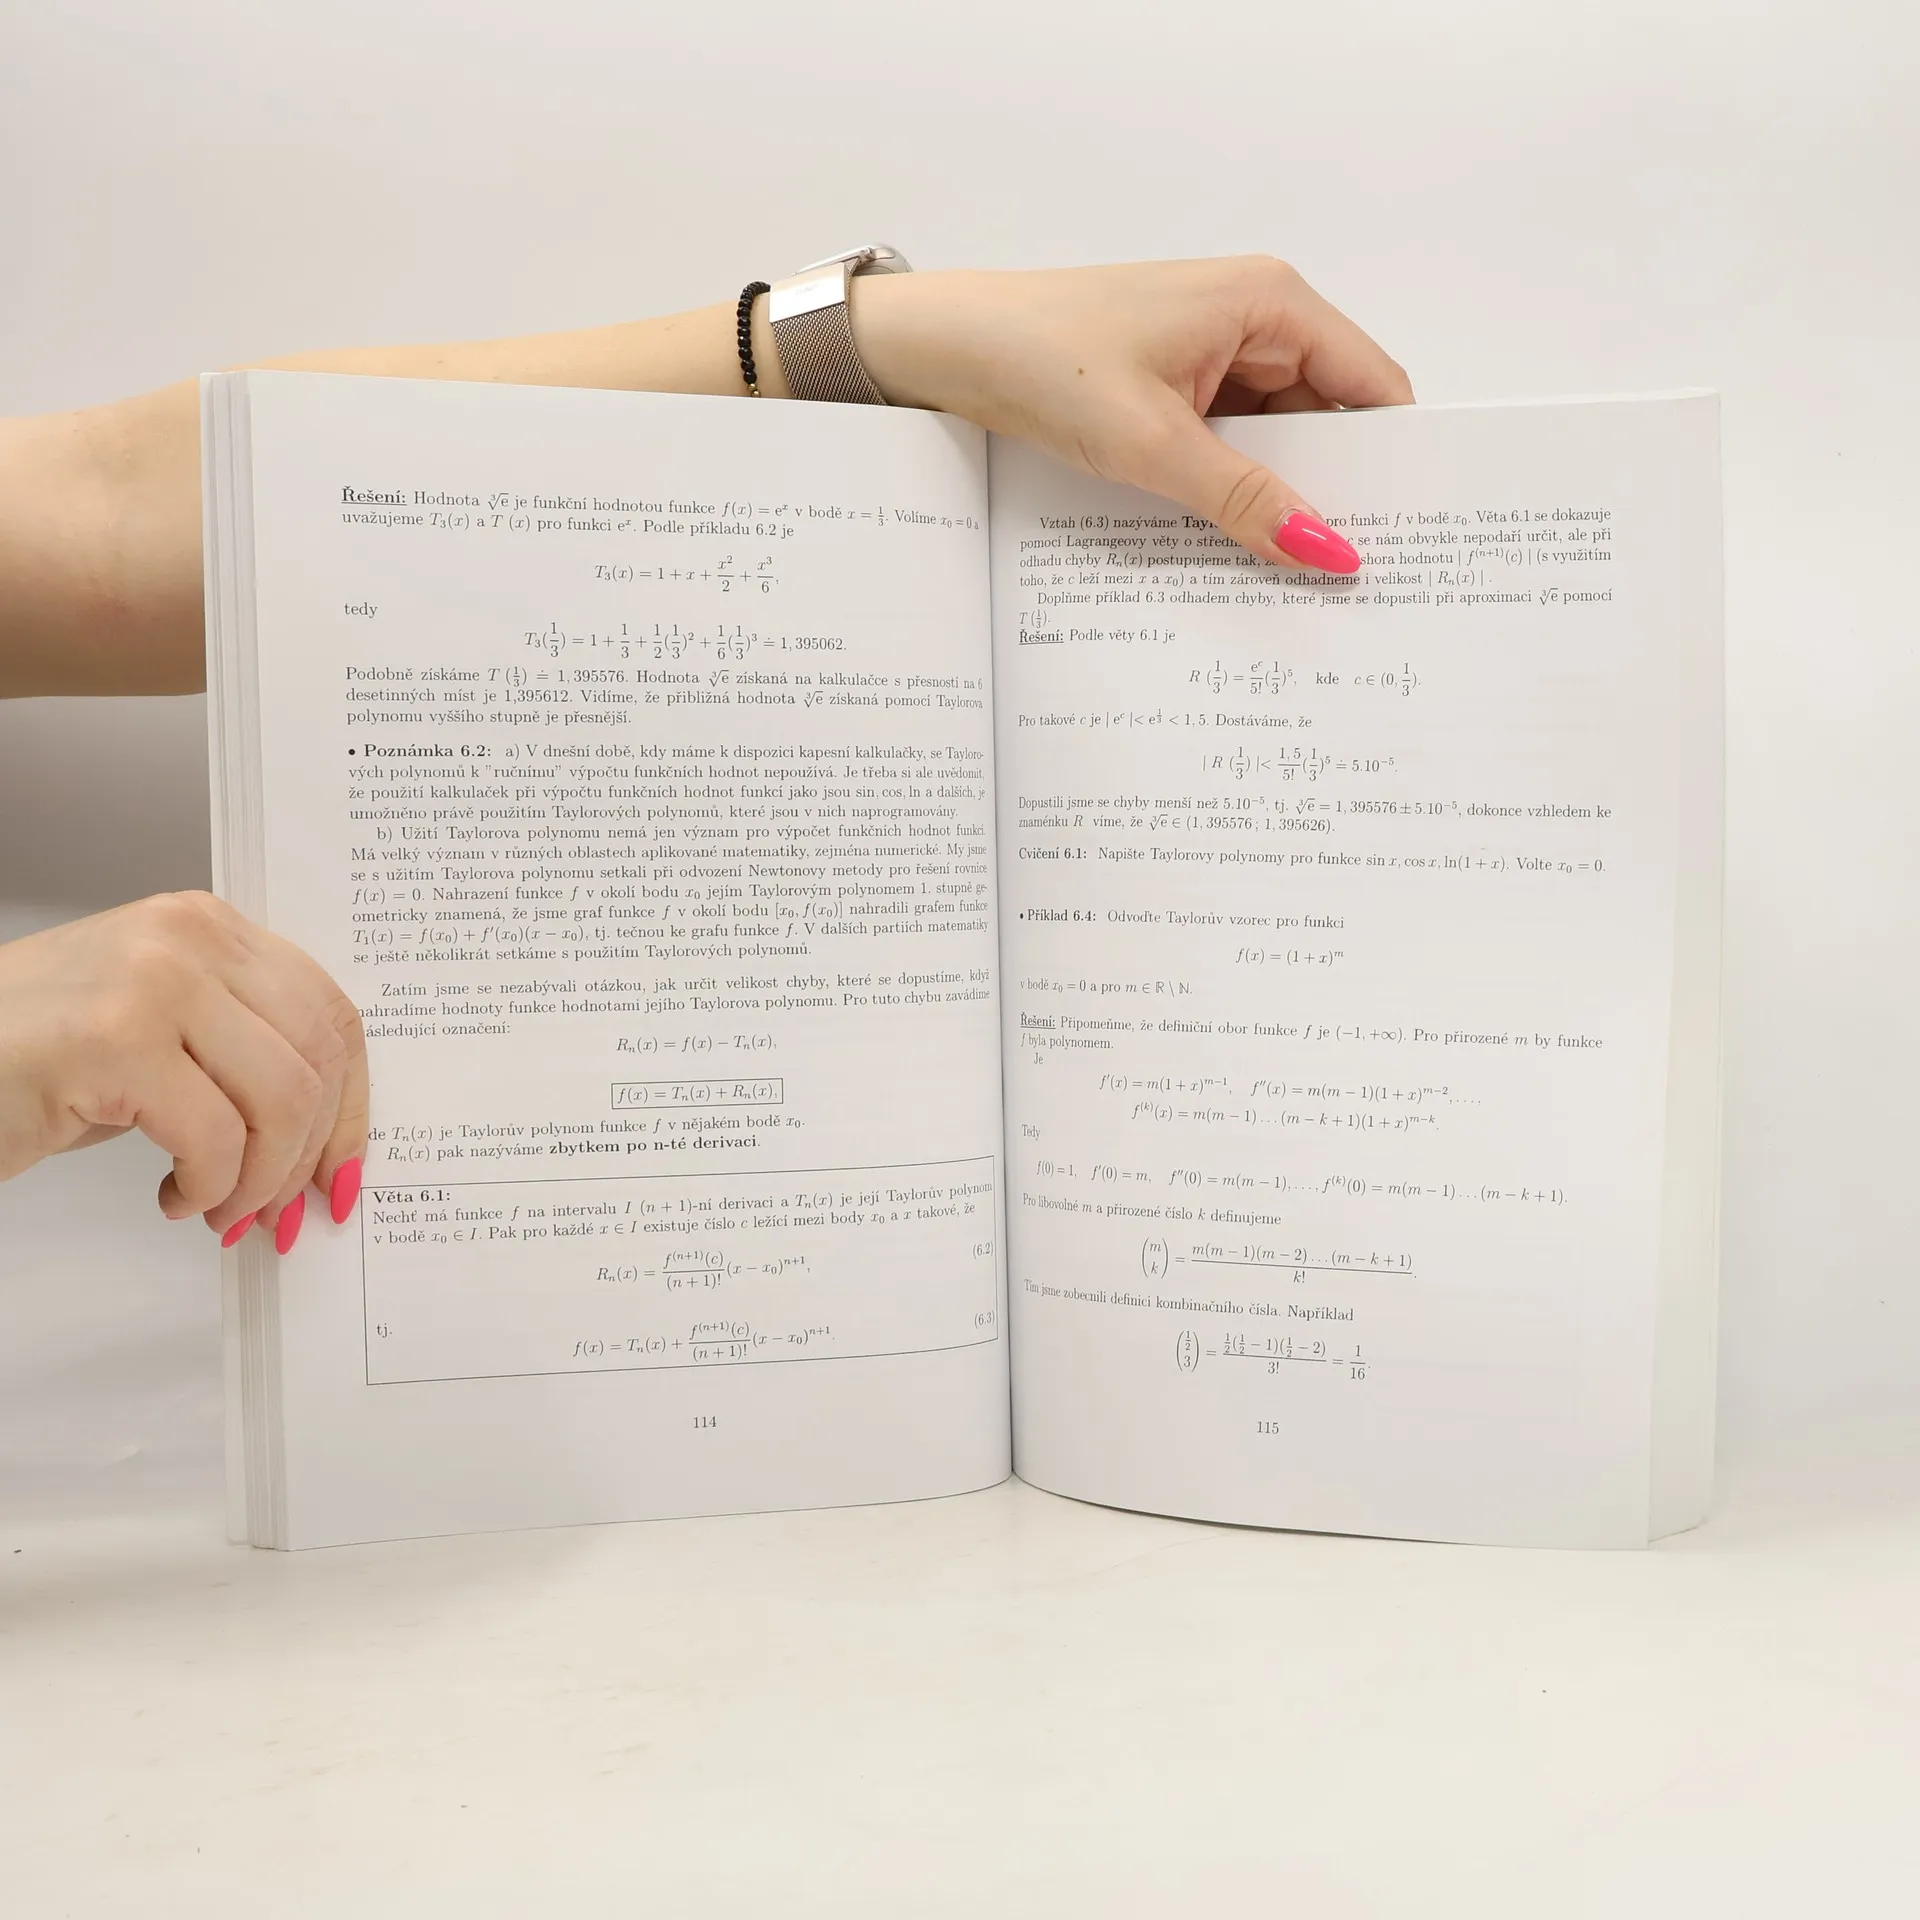 Řešení: Hodnota ∛e je funkční hodnotou funkce f(x) = eˣ v bodě x = 1/3. Volíme x₀ = 0 a
uvažujeme T₃(x) a T (x) pro funkci eˣ. Podle příkladu 6.2 je
T₃(x) = 1 + x + x²/2 + x³/6,
tedy
T₃(1/3) = 1 + 1/3 + 1/2(1/3)² + 1/6(1/3)³ ≐ 1,395062.
Podobně získáme T (1/3) ≐ 1,395576. Hodnota ∛e získaná na kalkulačce s přesností na 6
desetinných míst je 1,395612. Vidíme, že přibližná hodnota ∛e získaná pomocí Taylorova
polynomu vyššího stupně je přesnější.
• Poznámka 6.2: a) V dnešní době, kdy máme k dispozici kapesní kalkulačky, se Tayloro-
vých polynomů k "ručnímu" výpočtu funkčních hodnot nepoužívá. Je třeba si ale uvědomit,
že použití kalkulaček při výpočtu funkčních hodnot funkcí jako jsou sin, cos, ln a dalších, je
umožněno právě použitím Taylorových polynomů, které jsou v nich naprogramovány.
b) Užití Taylorova polynomu nemá jen význam pro výpočet funkčních hodnot funkcí.
Má velký význam v různých oblastech aplikované matematiky, zejména numerické. My jsme
se s užitím Taylorova polynomu setkali při odvození Newtonovy metody pro řešení rovnice
f(x) = 0. Nahrazení funkce f v okolí bodu x₀ jejím Taylorovým polynomem 1. stupně ge-
ometricky znamená, že jsme graf funkce f v okolí bodu [x₀, f(x₀)] nahradili grafem funkce
T₁(x) = f(x₀) + f′(x₀)(x − x₀), tj. tečnou ke grafu funkce f. V dalších partiích matematiky
se ještě několikrát setkáme s použitím Taylorových polynomů.
Zatím jsme se nezabývali otázkou, jak určit velikost chyby, které se dopustíme, když
nahradíme hodnoty funkce hodnotami jejího Taylorova polynomu. Pro tuto chybu zavádíme
ásledující označení:
Rₙ(x) = f(x) − Tₙ(x),
f(x) = Tₙ(x) + Rₙ(x),
de Tₙ(x) je Taylorův polynom funkce f v nějakém bodě x₀.
Rₙ(x) pak nazýváme zbytkem po n-té derivaci.
Věta 6.1:
Nechť má funkce f na intervalu I (n + 1)-ní derivaci a Tₙ(x) je její Taylorův polynom
v bodě x₀ ∈ I. Pak pro každé x ∈ I existuje číslo c ležící mezi body x₀ a x takové, že
Rₙ(x) = f⁽ⁿ⁺¹⁾(c)/(n + 1)! (x − x₀)ⁿ⁺¹, (6.2)
tj.
f(x) = Tₙ(x) + f⁽ⁿ⁺¹⁾(c)/(n + 1)! (x − x₀)ⁿ⁺¹. (6.3)
114
Vztah (6.3) nazýváme pro funkci f v bodě x₀. Věta 6.1 se dokazuje
pomocí Lagrangeovy věty o c se nám obvykle nepodaří určit, ale při
odhadu chyby Rₙ(x) postupujeme tak, shora hodnotu | f⁽ⁿ⁺¹⁾(c) | (s využitím
toho, že c leží mezi x a x₀) a tím zároveň odhadneme i velikost | Rₙ(x) | .
Doplňme příklad 6.3 odhadem chyby, které jsme se dopustili při aproximaci ∛e pomocí
T (1/3).
Řešení: Podle věty 6.1 je
R (1/3) = eᶜ/5! (1/3)⁵, kde c ∈ (0, 1/3).
Pro takové c je | eᶜ |< e^(1/3) < 1,5. Dostáváme, že
| R (1/3) |< 1,5/5! (1/3)⁵ ≐ 5.10⁻⁵.
Dopustili jsme se chyby menší než 5.10⁻⁵, tj. ∛e = 1,395576 ± 5.10⁻⁵, dokonce vzhledem ke
znaménku R víme, že ∛e ∈ (1,395576 ; 1,395626).
Cvičení 6.1: Napište Taylorovy polynomy pro funkce sin x, cos x, ln(1 + x). Volte x₀ = 0.
• Příklad 6.4: Odvoďte Taylorův vzorec pro funkci
f(x) = (1 + x)ᵐ
v bodě x₀ = 0 a pro m ∈ ℝ \ ℕ.
Řešení: Připomeňme, že definiční obor funkce f je (−1, +∞). Pro přirozené m by funkce
f byla polynomem.
Je
f′(x) = m(1 + x)ᵐ⁻¹, f″(x) = m(m − 1)(1 + x)ᵐ⁻², . . . .
f⁽ᵏ⁾(x) = m(m − 1) . . . (m − k + 1)(1 + x)ᵐ⁻ᵏ.
Tedy
f(0) = 1, f′(0) = m, f″(0) = m(m − 1), . . . , f⁽ᵏ⁾(0) = m(m − 1) . . . (m − k + 1).
Pro libovolné m a přirozené číslo k definujeme
(m k) = m(m − 1)(m − 2) . . . (m − k + 1)/k!.
Tím jsme zobecnili definici kombinačního čísla. Například
(1/2 3) = 1/2(1/2 − 1)(1/2 − 2)/3! = 1/16.
115